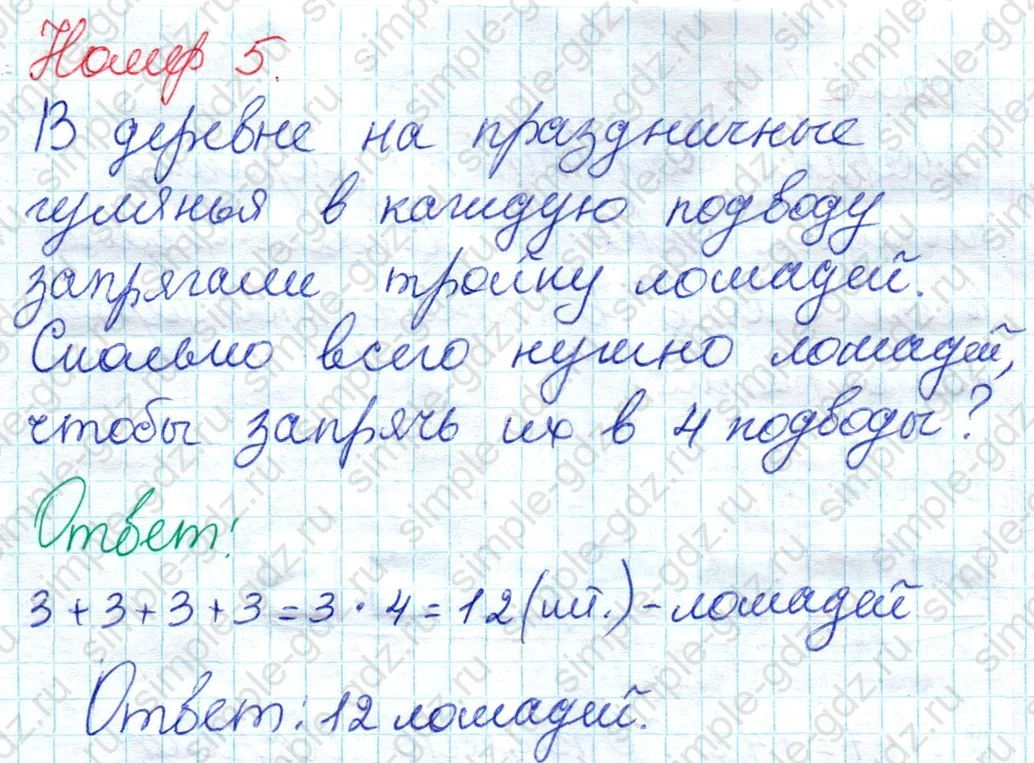 Номер 5.
В деревне на праздничные
гулянья в каждую подводу
запрягали тройку лошадей.
Сколько всего нужно лошадей,
чтобы запрячь их в 4 подводы?
Ответ:
3 + 3 + 3 + 3 = 3 · 4 = 12 (шт.) - лошадей
Ответ: 12 лошадей.
simple-gdz.ru